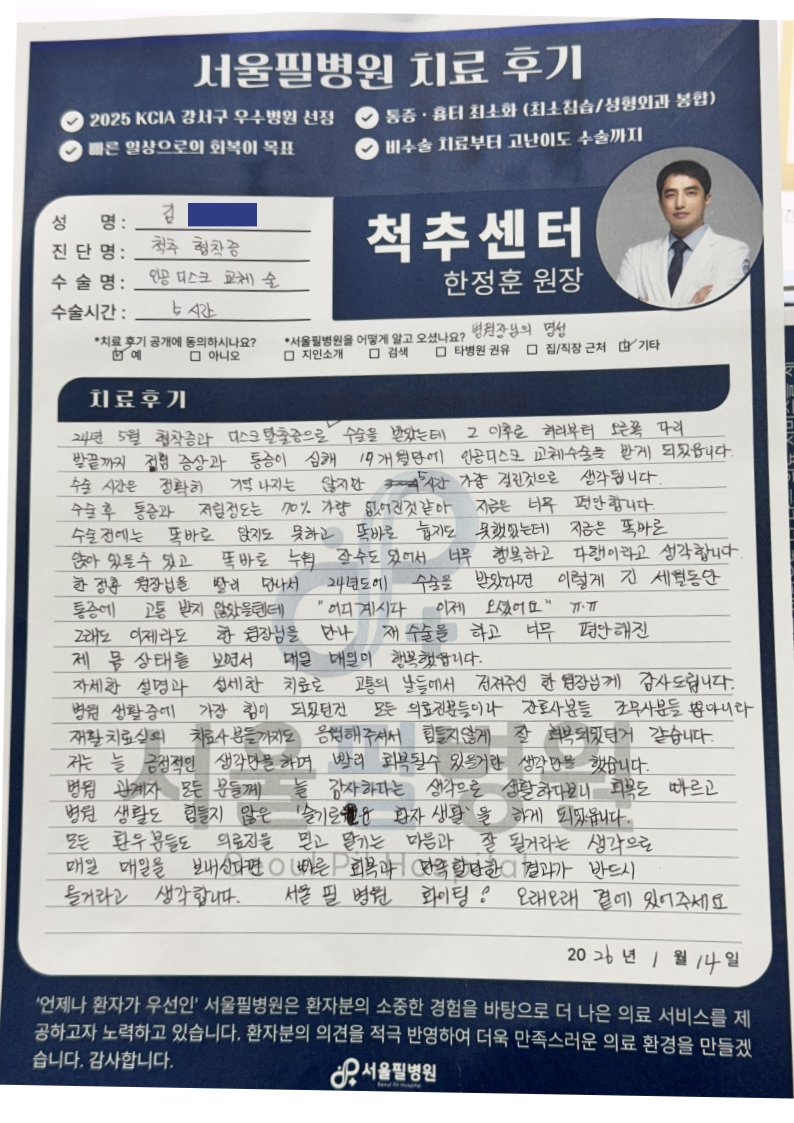 서울필병원 치료 후기
2025 KCIA 강서구 우수병원 선정
통증 · 흉터 최소화 (최소침습/성형외과 봉합)
빠른 일상으로의 회복이 목표
비수술 치료부터 고난이도 수술까지
성 명 : 김
진 단 명 : 척추 협착증
수 술 명 : 인공디스크 교체 술
수술시간 : 5시간
척추센터
한정훈 원장
*치료 후기 공개에 동의하시나요?
예 아니오
*서울필병원을 어떻게 알고 오셨나요? 병원장님의 명성
지인소개 검색 타병원 권유 집/직장 근처 기타
치료후기
24년 5월 협착증과 디스크탈출증으로 수술을 받았는데 그 이후로 허리부터 오른쪽 다리
발끝까지 저림 증상과 통증이 심해 19개월만에 인공디스크 교체수술을 받게 되었읍니다.
수술 시간은 정확히 기억나지는 않지만 5시간 가량 걸린것으로 생각됩니다.
수술후 통증과 저림정도는 70% 가량 없어진것같아 지금은 너무 편안합니다.
수술전에는 똑바로 앉지도 못하고 똑바로 눕지도 못했었는데 지금은 똑바로
앉아 있을수 있고 똑바로 누워 잘수도 있어서 너무 행복하고 다행이라고 생각합니다
한정훈 원장님을 빨리 만나서 24년도에 수술을 받았다면 이렇게 긴 세월동안
통증에 고통 받지 않았을텐데 "어디계시다 이제 오셨어요" ㅠ.ㅠ
그래도 이제라도 한 원장님을 만나 재수술을 하고 너무 편안해진
제 몸 상태를 보면서 매일 매일이 행복했습니다.
자세한 설명과 섬세한 치료로 고통의 날들에서 건져주신 한 원장님께 감사드립니다.
병원 생활중에 가장 힘이 되었던건 모든 의료진분들이나 간호사분들 조무사분들 뿐아니라
재활치료실의 치료사분들까지도 응원해주셔서 힘들지않게 잘 회복되었던거 같습니다.
저는 늘 긍정적인 생각만을하며 빨리 회복될수 있을거란 생각만을 했습니다.
병원 관계자 모든 분들께 늘 감사하다는 생각으로 생활하다보니 회복도 빠르고
병원 생활도 힘들지 않은 '슬기로운 환자 생활'을 하게 되었읍니다.
모든 환우분들도 의료진을 믿고 맡기는 마음과 잘 될거라는 생각으로
매일 매일을 보내신다면 빠른 회복과 만족할만한 결과가 반드시
올거라고 생각합니다. 서울 필 병원 화이팅! 오래오래 곁에 있어주세요
서울필병원
Seoul Pil Hospital
2026년 1월 14일
'언제나 환자가 우선인' 서울필병원은 환자분의 소중한 경험을 바탕으로 더 나은 의료 서비스를 제
공하고자 노력하고 있습니다. 환자분의 의견을 적극 반영하여 더욱 만족스러운 의료 환경을 만들겠
습니다. 감사합니다.
서울필병원
Seoul Pil Hospital